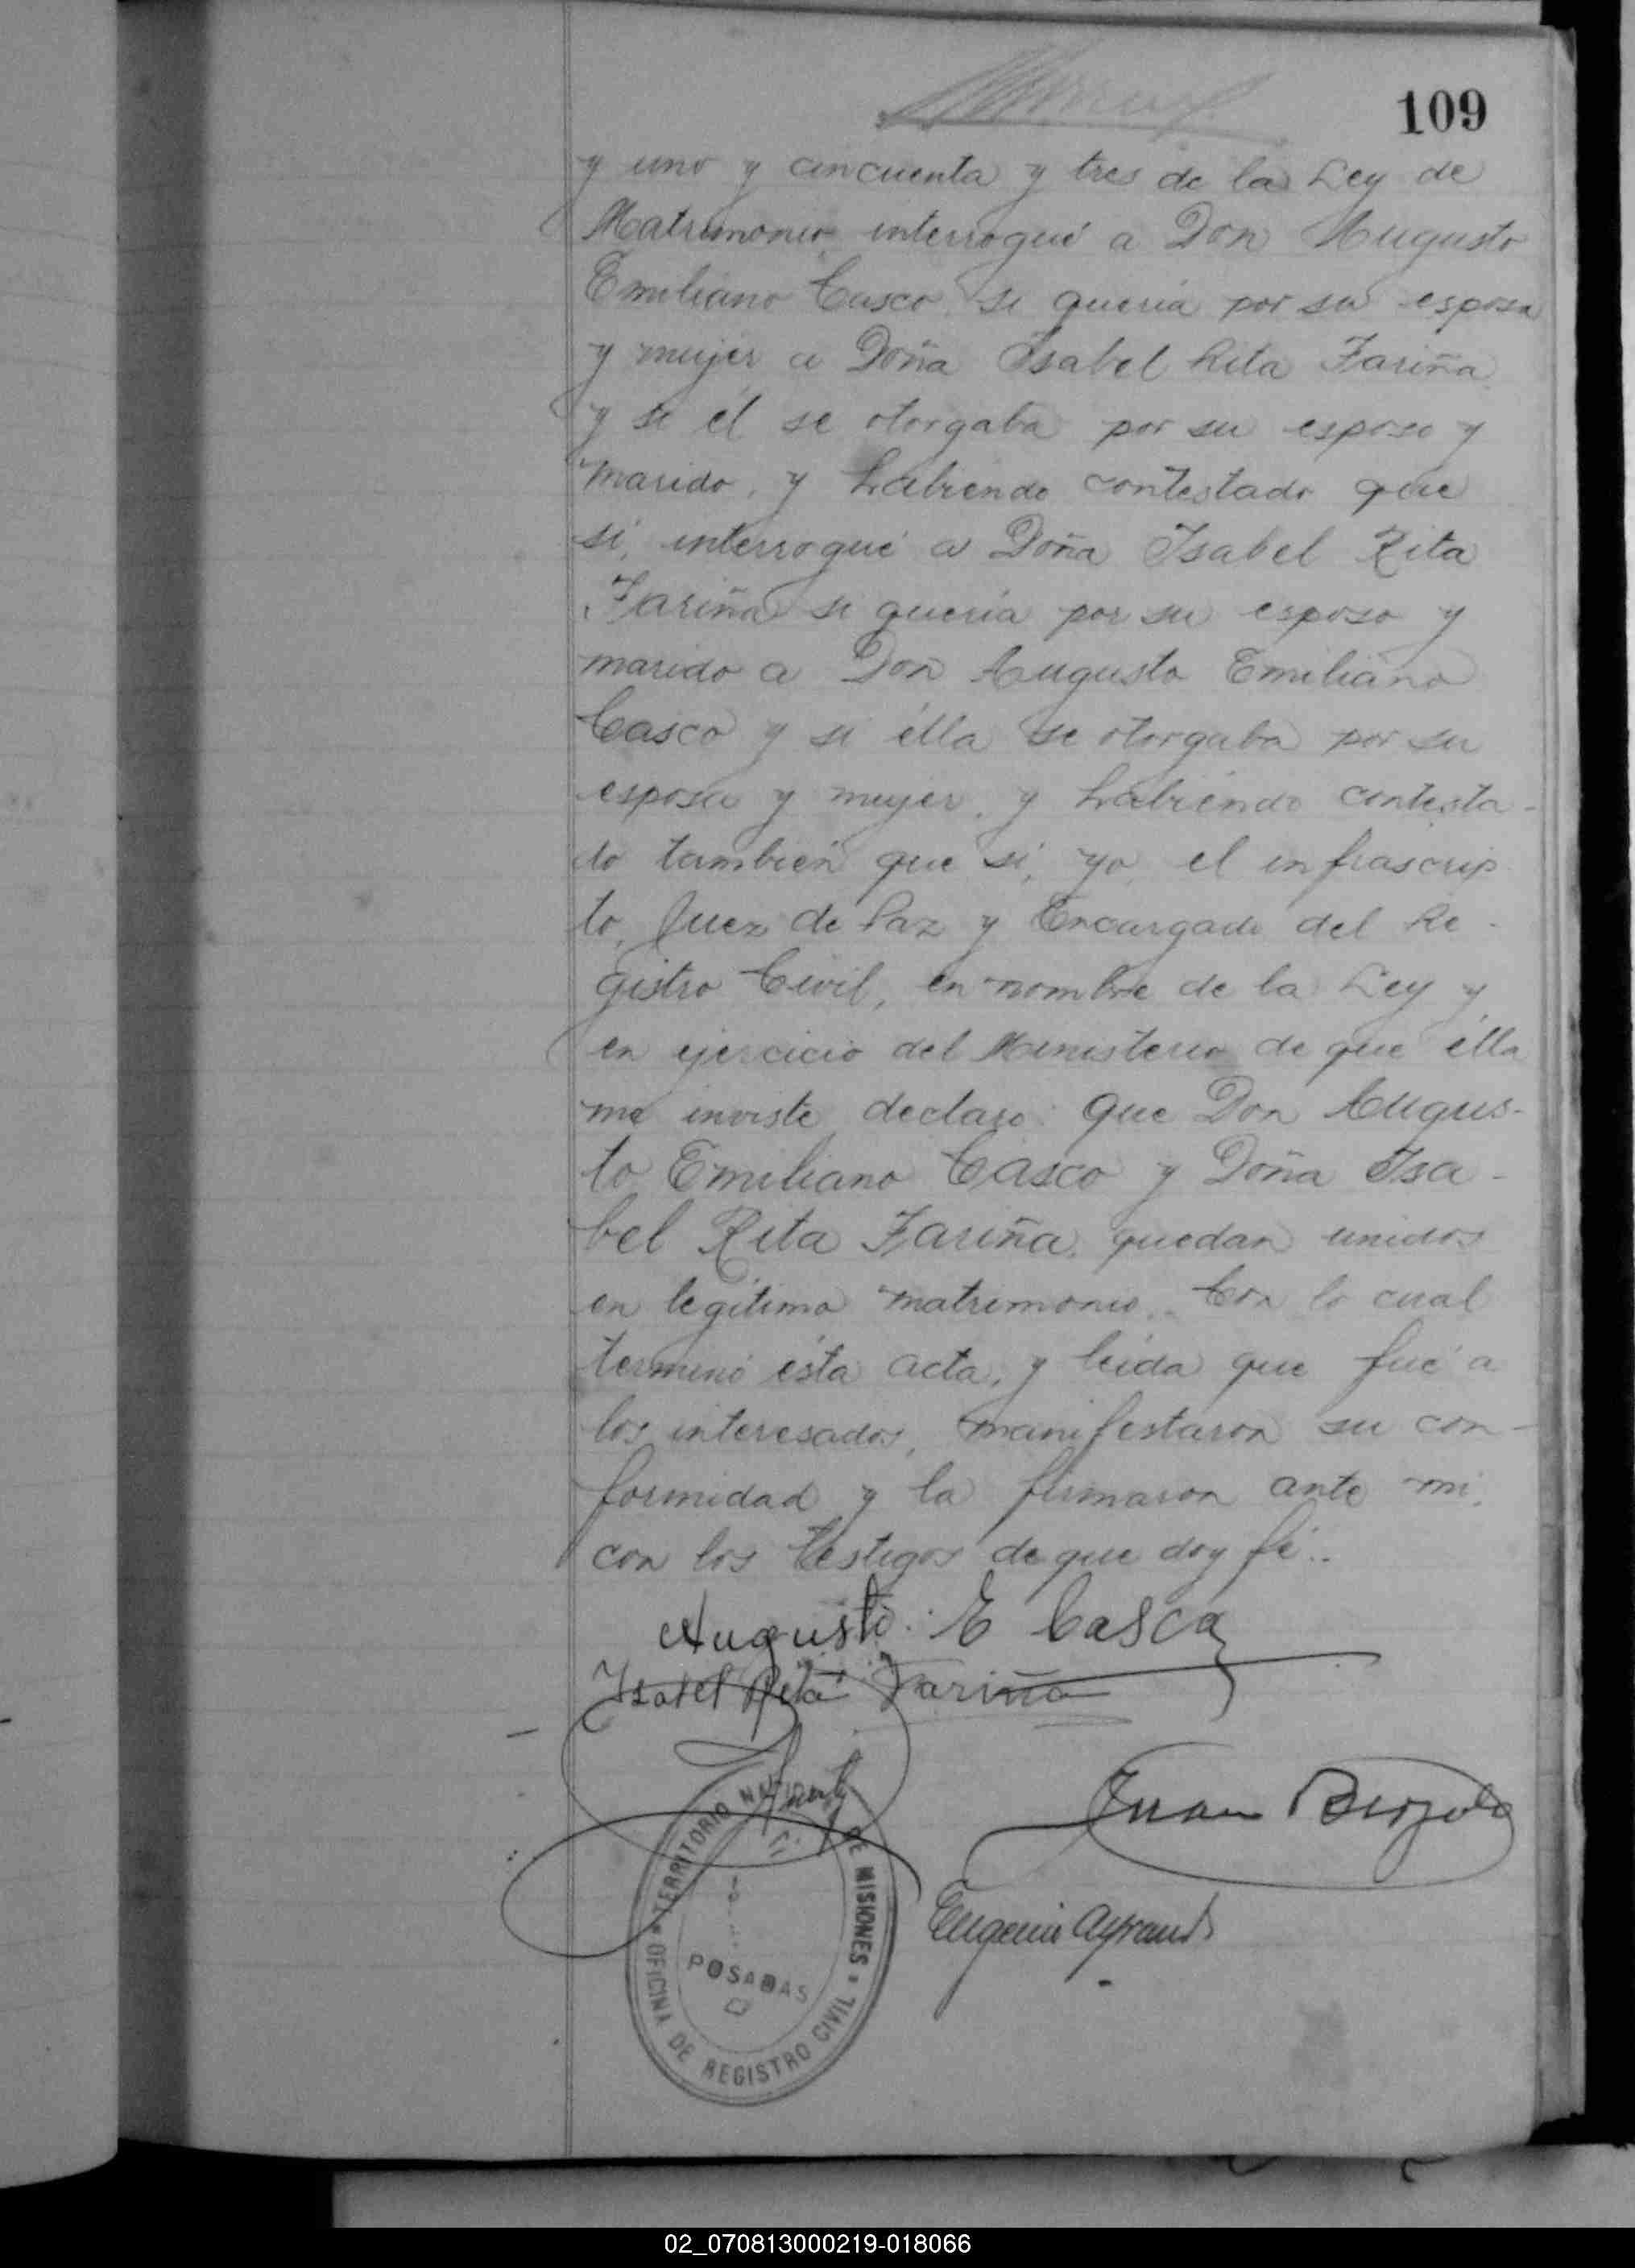 109
y uno y cincuenta y tres de la Ley de
Matrimonio interrogué a Don Augusto
Emiliano Casco si quería por su esposa
y mujer a Doña Isabel Rita Fariña
y si él se otorgaba por su esposo y
marido, y habiendo contestado que
sí, interrogué a Doña Isabel Rita
Fariña si quería por su esposo y
marido a Don Augusto Emiliano
Casco y si élla se otorgaba por su
esposa y mujer, y habiendo contesta-
do también que sí, yo, el infrascrip
to, Juez de Paz y Encargado del Re-
gistro Civil, en nombre de la Ley y
en ejercicio del Ministerio de que élla
me inviste declaro: que Don Augus-
to Emiliano Casco y Doña Isa-
bel Rita Fariña, quedan unidos
en legítimo matrimonio. Con lo cual
terminó ésta acta, y leída que fué a
los interesados, manifestaron su con-
formidad y la firmaron ante mi,
con los testigos de que doy fé..
Augusto E Casco
Isabel Rita Fariña
Juan
Eugenio
TERRITORIO NACIONAL DE MISIONES
POSADAS
OFICINA DE REGISTRO CIVIL
02_070813000219-018066